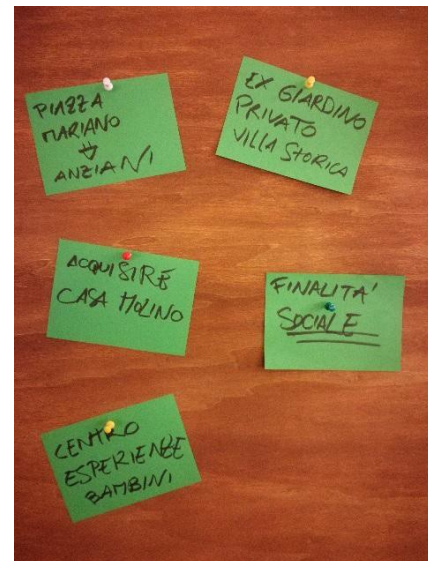 PIAZZA
MARIANO
↓
ANZIANI
EX GIARDINO
PRIVATO
VILLA STORICA
ACQUISIRE
CASA MOLINO
FINALITA'
SOCIALE
CENTRO
ESPERIENZE
BAMBINI